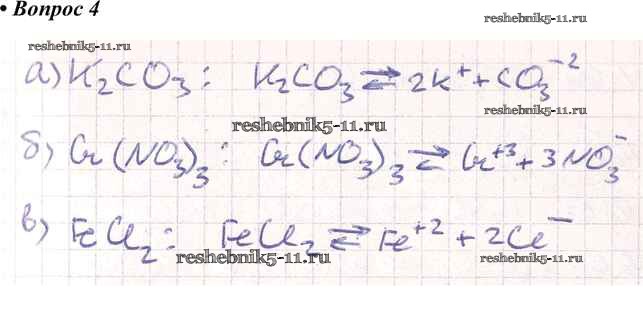 • Вопрос 4
reshebnik5-11.ru
reshebnik5-11.ru
а) K₂CO₃ : K₂CO₃ ⇄ 2K⁺ + CO₃⁻²
reshebnik5-11.ru
reshebnik5-11.ru
б) Cr(NO₃)₃ : Cr(NO₃)₃ ⇄ Cr⁺³ + 3NO₃⁻
reshebnik5-11.ru
в) FeCl₂ : FeCl₂ ⇄ Fe⁺² + 2Cl⁻
reshebnik5-11.ru
reshebnik5-11.ru